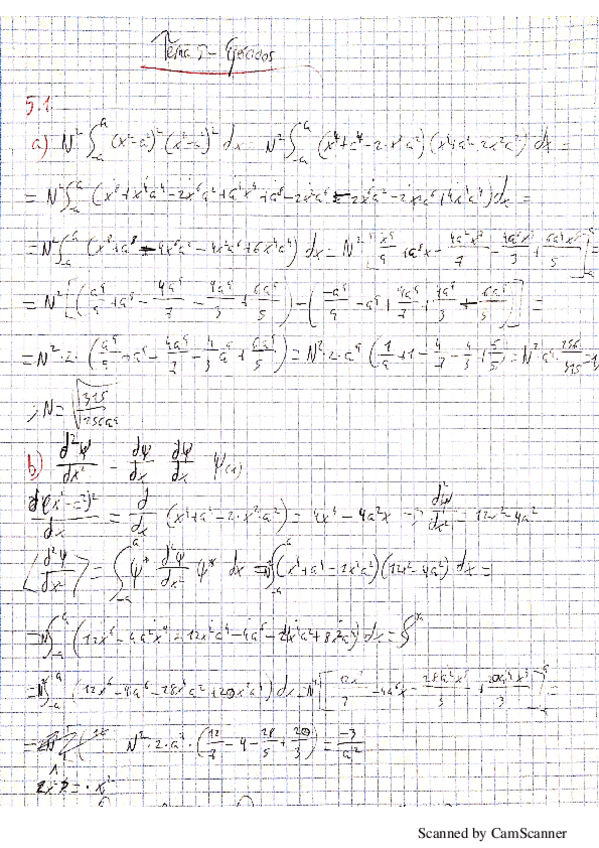 Tema 5 - Ejercicios
5.1.
a) N² ∫₋ₐᵃ (x²-a²)² (x²-a²)² dx = N² ∫₋ₐᵃ (x⁴+a⁴-2·x²a²)(x⁴+a⁴-2x²a²) dx =
= N² ∫₋ₐᵃ (x⁸+x⁴a⁴-2x⁶a²+a⁴x⁴+a⁸-2x²a⁶
= N² ∫₋ₐᵃ (x⁸+a⁸-4x⁶a²-4x²a⁶+6x⁴a⁴) dx = N² [x⁹/9 + a⁸x -
= N² [(a⁹/9 + a⁹ - 4a⁹/7 - 4a⁹/3 + 6a⁹/5) - (-a⁹/9 - a⁹ + 4a⁹/7 + 4a⁹/3 + 6a⁹/5)] =
= N²·2·(a⁹/9 + a⁹ - 4a⁹/7 - 4/3 a⁹ + 6a⁹/5) = N²·2·a⁹ (1/9 + 1 - 4/7 - 4/3 + 6/5) = N² a⁹ 256/315 = 1
; N = √(315/256a⁹)
b) d²ψ/dx² = dψ/dx dψ/dx ψ(x)
d(x²-a²)²/dx = d/dx (x⁴+a⁴-2·x²·a²) = 4x³-4a²x → d²ψ/dx² = 12x²-4a²
⟨d²ψ/dx²⟩ = ∫₋ₐᵃ ψ* d²ψ/dx² ψ* dx = ∫₋ₐᵃ (x⁴+a⁴-2x²a²)(12x²-4a²) dx =
= N² ∫₋ₐᵃ (12x⁶-4a²x⁴+12x²a⁴-4a⁶
= N² ∫₋ₐᵃ (12x⁶-4a⁶-28x⁴a²+20x²a⁴) dx = N² [12x⁷/7 - 4a⁶x - 28a²x⁵/5 + 20a⁴x³/3]₋ₐᵃ =
N²·2·a⁷·(12/7 - 4 - 28/5 + 20/3) = -3/a²
Scanned by CamScanner